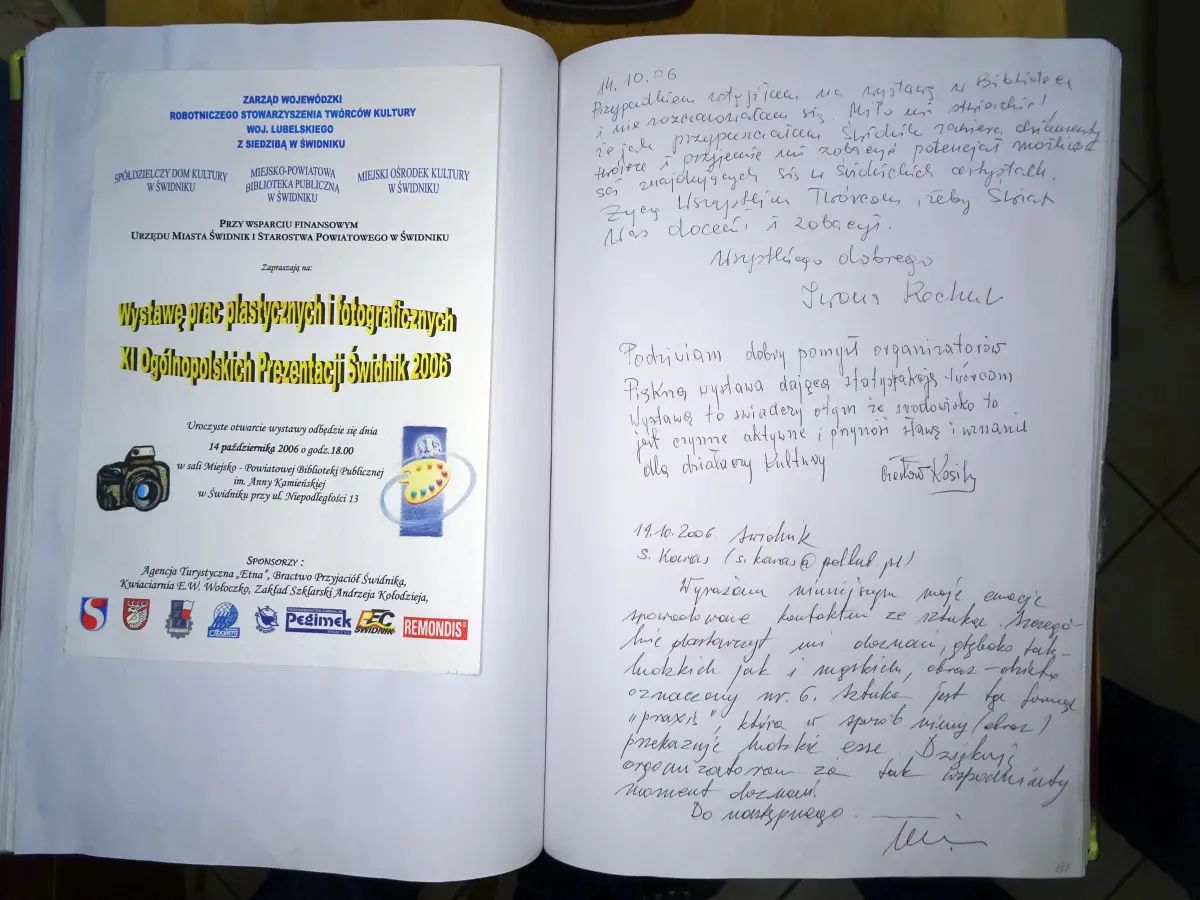 ZARZĄD WOJEWÓDZKI
ROBOTNICZEGO STOWARZYSZENIA TWÓRCÓW KULTURY
WOJ. LUBELSKIEGO
Z SIEDZIBĄ W ŚWIDNIKU
SPÓŁDZIELCZY DOM KULTURY
W ŚWIDNIKU
MIEJSKO-POWIATOWA
BIBLIOTEKA PUBLICZNA
W ŚWIDNIKU
MIEJSKI OŚRODEK KULTURY
W ŚWIDNIKU
PRZY WSPARCIU FINANSOWYM
URZĘDU MIASTA ŚWIDNIK I STAROSTWA POWIATOWEGO W ŚWIDNIKU
Zapraszają na:
Wystawę prac plastycznych i fotograficznych
XI Ogólnopolskich Prezentacji Świdnik 2006
Uroczyste otwarcie wystawy odbędzie się dnia
14 października 2006 o godz.18.00
w sali Miejsko - Powiatowej Biblioteki Publicznej
im. Anny Kamieńskiej
w Świdniku przy ul. Niepodległości 13
SPONSORZY :
Agencja Turystyczna „Etna", Bractwo Przyjaciół Świdnika,
Kwiaciarnia E.W. Wołoczko, Zakład Szklarski Andrzeja Kołodzieja,
PEGIMEK
ŚWIDNIK
REMONDIS
14.10.06
Przypadkiem na wystawę w Bibliotece
i nie rozczarowałam się. Miło mi stwierdzić!
że jak przypuszczałam Świdnik zawiera diamenty
twórcze i przyjemnie mi zobaczyć potencjał możliwości
znajdujących się w Świdnickich artystach.
Życzę Wszystkim Twórcom, żeby Świat
Was docenił i zobaczył.
Wszystkiego dobrego
Iwona
Podziwiam dobry pomysł organizatorów
Piękna wystawa dająca satysfakcję twórcom
Wystawa to świadczy o tym że środowisko to
jest czynne aktywne i przynosi sławę i uznanie
dla działaczy Kultury
19.10.2006. Świdnik
S. Karas (s.karas@pollub.pl)
Wyrażam niniejszym moje emocje
spowodowane kontaktem ze sztuką. Szczegól-
nie dostarczył mi doznań, głęboko tak
ludzkich jak i męskich, obraz-dzieło
oznaczony nr. 6. Sztuka jest tą formą
„praxis", która w sposób niemy (obraz)
przekazuje ludzkie esse. Dziękuję
organizatorom za tak wspaniały
moment doznań.
Do następnego.